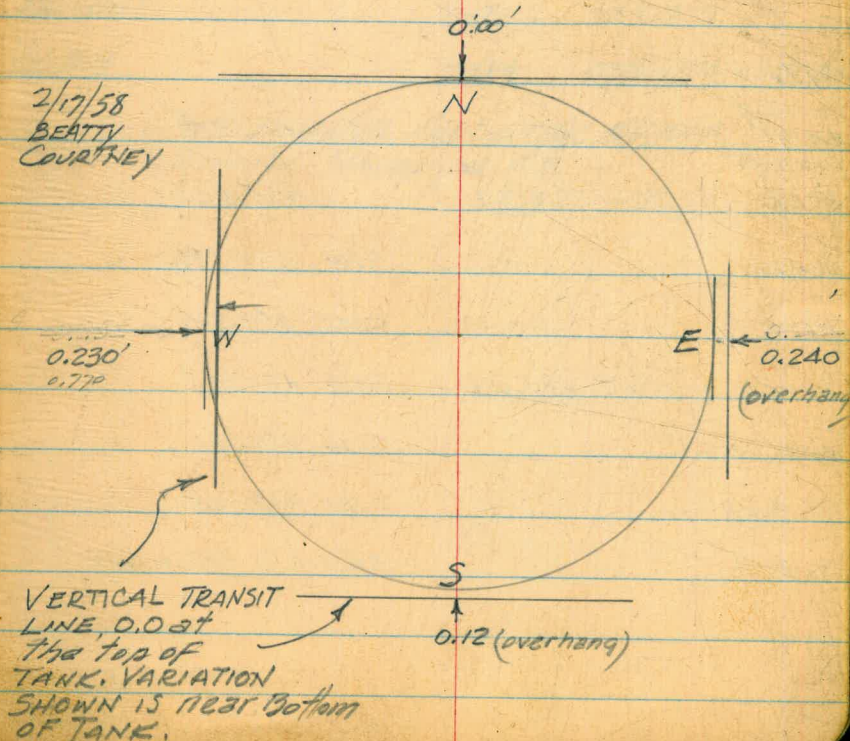 0.00'
N
2/17/58
BEATTY
COURTNEY
W
0.230'
0.770
E
0.240
(overhang
S
0.12 (overhang)
VERTICAL TRANSIT
LINE, 0.0 at
the top of
TANK. VARIATION
SHOWN IS near Bottom
OF TANK.